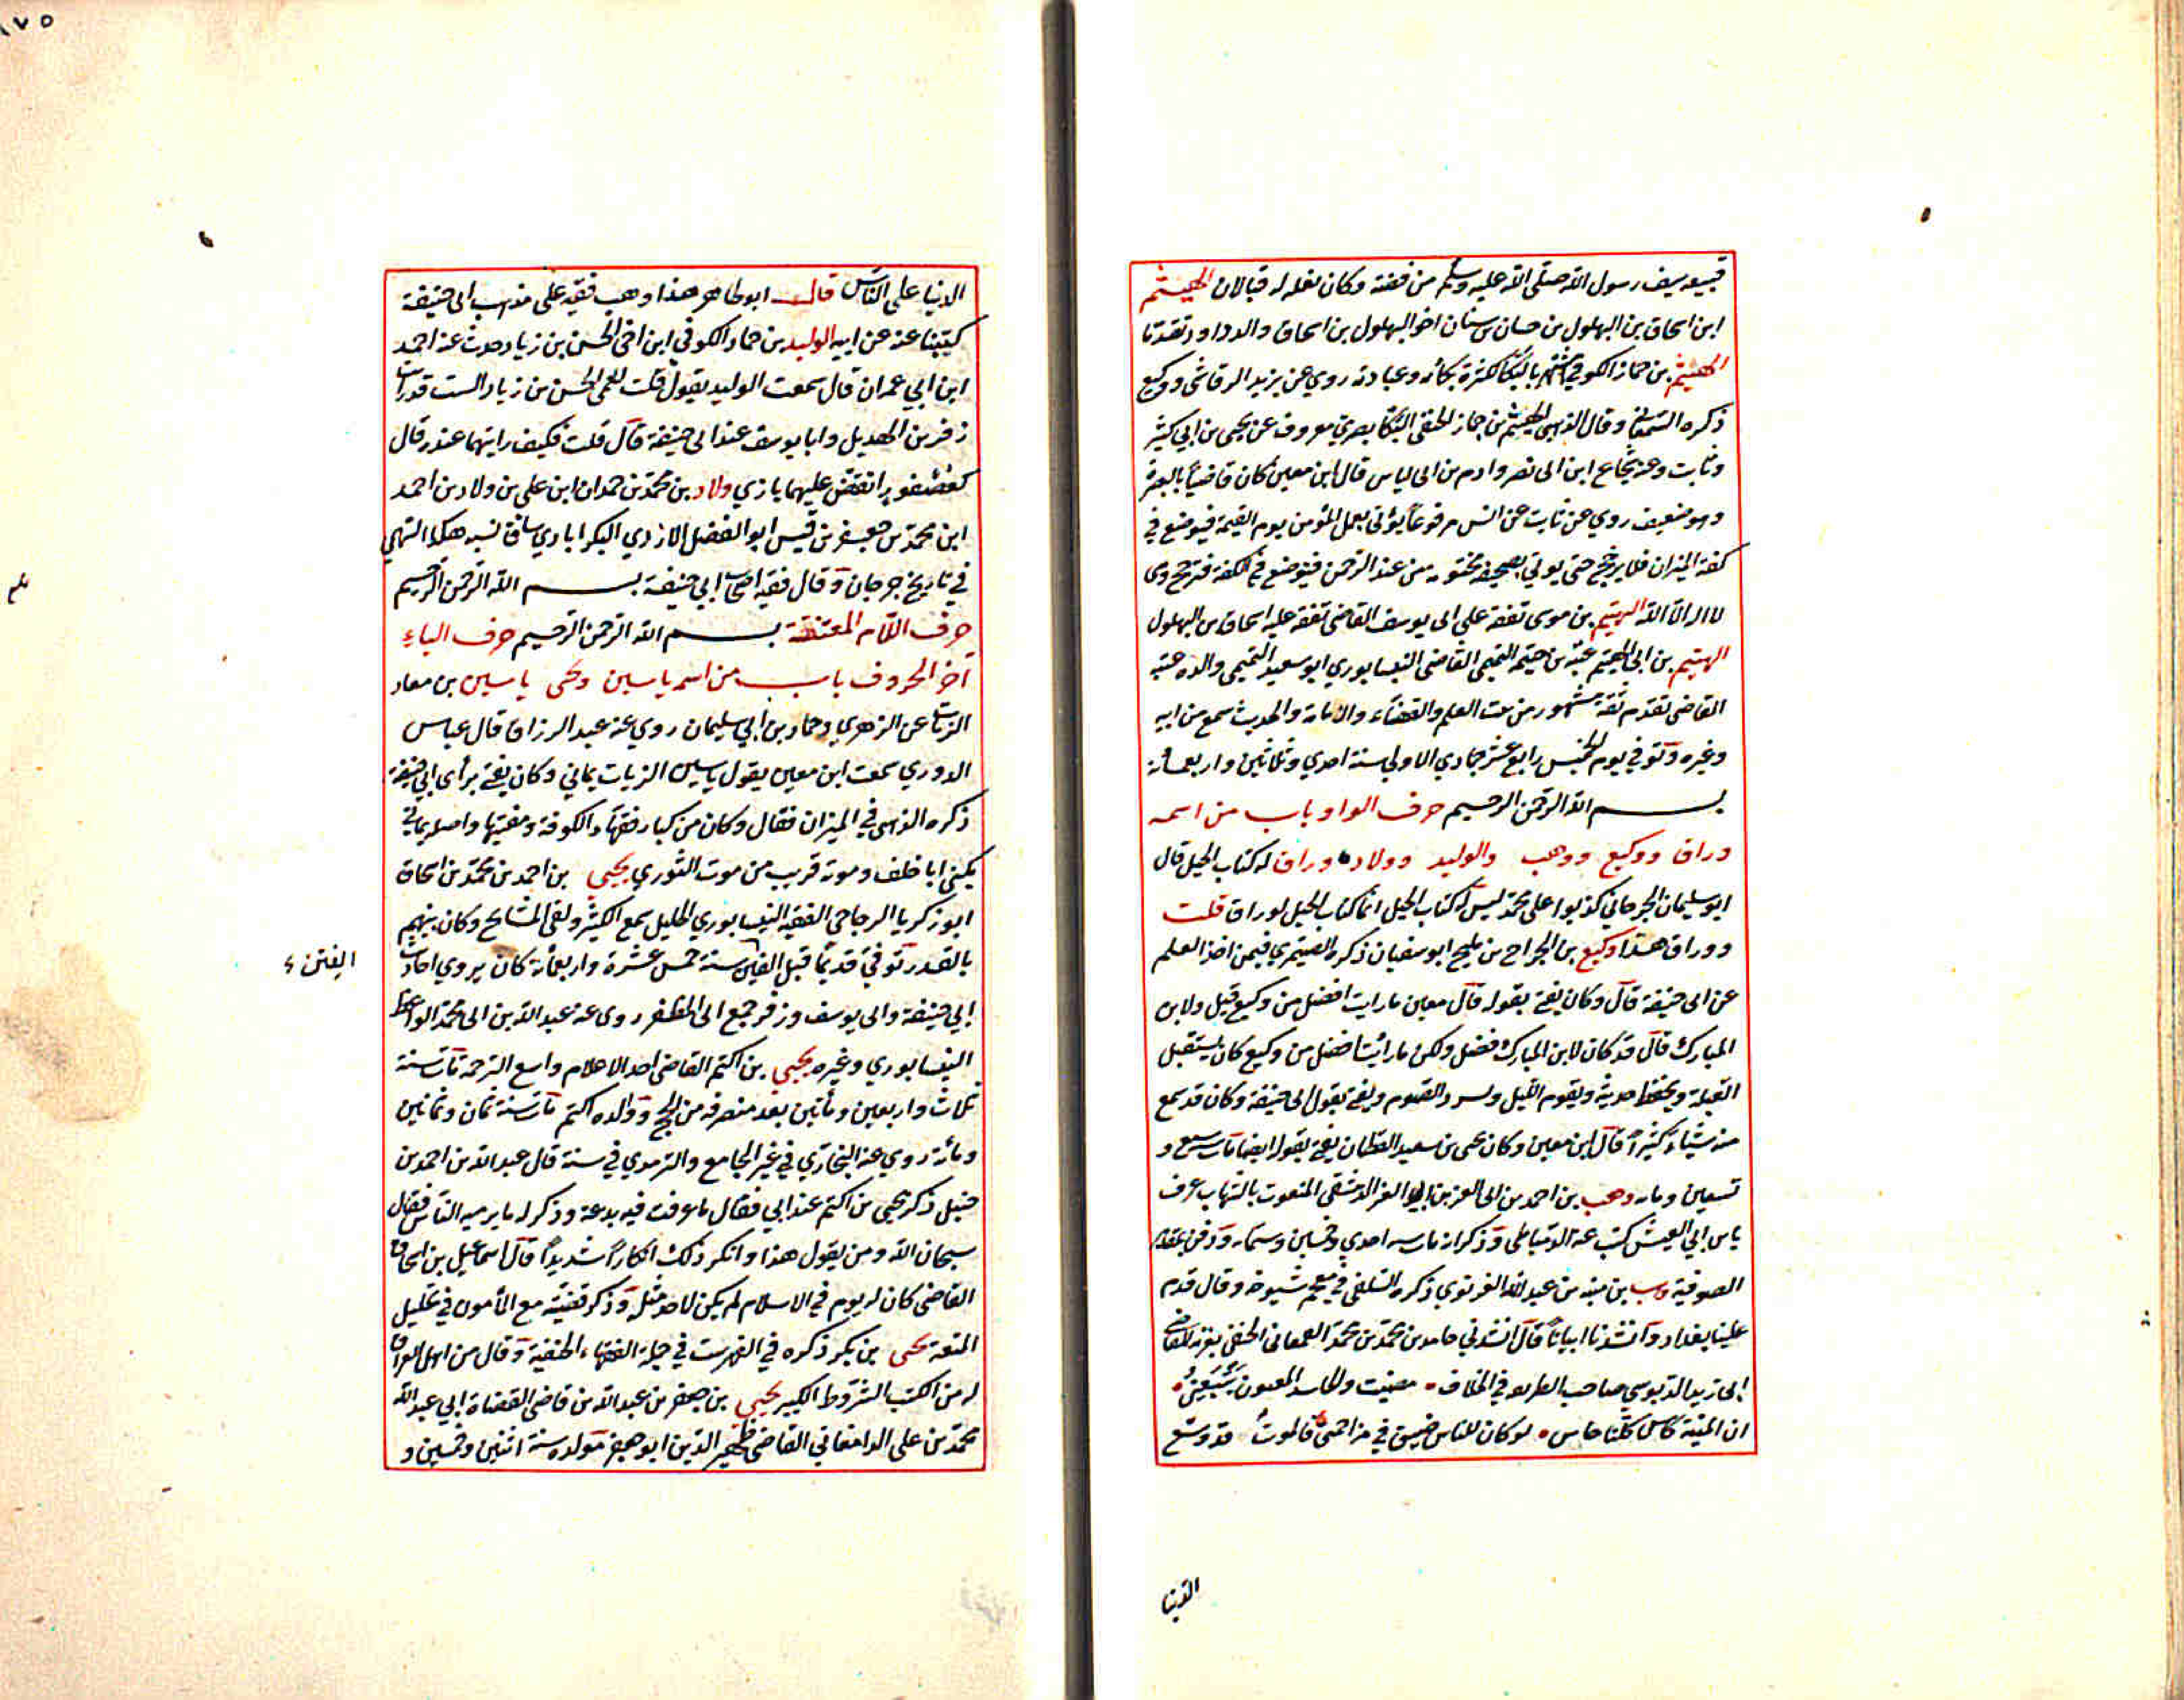 قبيعه سيف رسول الله صلى الله عليه وسلم من فضة وكان نعله له قبالان الهيثم
ابن اسحاق بن البهلول بن حسان بن سنان اخو البهلول بن اسحاق والد داود تقدما
الهيثم بن حماز الكوفي البكا لكثرة بكائه وعبادته روي عن يزيد الرقاشى ووكيع
ذكره السمعاني وقال الذهبي الهيثم بن جماز الحنفى البكا بصري معروف عن يحيى بن ابي كثير
وثابت وعنه شجاع ابن ابى نصر وادم بن ابى اياس قال ابن معين كان قاضيا بالبصرة
وهو ضعيف روي عن ثابت عن انس مرفوعا يؤتى بعمل المؤمن يوم القيمة فيوضع في
كفة الميزان فلا يرجح حتى يوتي بصحيفة مختومه من عند الرحمن فيوضع في الكفه فترجح وهى
لا اله الا الله الهيثم بن موسى تفقه على ابى يوسف القاضى تفقه عليه اسحاق بن البهلول
الهيثم بن ابي الهيثم عتبة بن خيثمه التميمي القاضى النيسابوري ابو سعيد التميمي والده عتبه
القاضى تقدم ثقة مشهور من بيت العلم والقضاء والامامة والحديث سمع من ابيه
وغيره وتوفي يوم الخميس رابع عشر جمادي الاولى سنة احدي وثلاثين واربعمائة
بسم الله الرحمن الرحيم حرف الواو باب من اسمه
وراق ووكيع ووهب والوليد وولاد وراق له كتاب الحيل قال
ابو سليمان الجرجاني كذبوا على محمد ليس له كتاب الحيل انما كتاب الحيل لوراق قلت
ووراق هذا وكيع بن الجراح بن مليح ابو سفيان ذكره الصيمري فيمن اخذ العلم
عن ابى حنيفة قال وكان يفتى بقوله قال معين ما رايت افضل من وكيع قيل ولا بن
المبارك قال قد كان لابن المبارك فضل ولكن ما رايت افضل من وكيع كان يستقبل
القبلة ويحفظ حديثه ويقوم الليل ويسرد الصوم ويفتى بقول ابى حنيفة وكان قد سمع
منه شياء كثيرا قال ابن معين وكان يحيى بن سعيد القطان يفتى بقوله ايضا مات سنة سبع و
تسعين ومايه وهب بن احمد بن ابى العز بن ابى العز الدمشقى المنعوت بالشهاب عرف
بابن ابي العيش كتب عنه الدمياطى وذكر انه مات سنة احدي وخمسين وستمايه ودفن بمقابر
الصوفية وهب بن منبه بن عبد الله الغزنوي ذكره السلفى في معجم شيوخه وقال قدم
علينا بغداد وانشدنا ابياتا قال انشدني حامد بن محمد بن محمد الحنفى بغزنه للقاضى
ابى زيد الدبوسي صاحب الطريقه في الخلاف مضيت والحاسد المغبون يتبعني
ان المنية كاس كلنا حاس لو كان للناس ضيق في مزاحمتى فالموت قد وسع
الدنيا
١٧٥
الدنيا على الناس قال ابو طاهر هذا وهب فقيه على مذهب ابى حنيفة
كتبنا عنه عن ابيه الوليد بن حماد الكوفي ابن اخى الحسن بن زياد حدث عنه احمد
ابن ابي عمران قال سمعت الوليد يقول قلت لعمى الحسن بن زياد الست قد رايت
زفر بن الهديل وابا يوسف عند ابى حنيفة قال قلت فكيف رايتهما عنده قال
كعصفورين انقض عليهما بازي ولاد بن محمد بن حمدان ابن على بن ولاد بن احمد
ابن محمد بن جعفر بن قيس ابو الفضل الازدي البكراباذي ساق نسبه هكذا السهمي
في تاريخ جرجان وقال فقيه اصحاب ابي حنيفة بسم الله الرحمن الرحيم
حرف اللام المعتنقة بسم الله الرحمن الرحيم حرف الياء
آخر الحروف باب من اسمه ياسين ويحيى ياسين بن معاد
الزيات عن الزهري وحماد بن ابي سليمان روي عنه عبد الرزاق قال عباس
الدوري سمعت ابن معين يقول ياسين الزيات يماني وكان يفتى براي ابي حنيفة
ذكره الذهبي في الميزان فقال وكان من كبار فقهاء الكوفة ومفتيها واصله يماني
يكنى ابا خلف وموته قريب من موت الثوري يحيى بن احمد بن محمد بن اسحاق
ابو زكريا الزجاجى الفقيه النيسابوري الجليل سمع الكثير ولقى المشايخ وكان يتهم
بالقدر توفي قديما قبل الفتن سنة خمس عشرة واربعمائة كان يروي احاديث
ابي حنيفة وابى يوسف وزفر جمع ابى المظفر روى عنه عبد الله بن ابى محمد الواعظ
الفتن
النيسابوري وغيره يحيى بن اكثم القاضى احد الاعلام واسع الترجمة مات سنة
ثلاث واربعين ومأتين بعد منصرفه من الحج ووالده اكثم مات سنة ثمان وثمانين
ومائة روي عنه البخاري في غير الجامع والترمدي في سننه قال عبد الله بن احمد بن
حنبل ذكر يحيى بن اكثم عند ابي فقال ما عرفت فيه بدعة وذكر له ما يرميه الناس فقال
سبحان الله ومن يقول هذا وانكر ذلك انكارا شديدا قال اسماعيل بن اسحاق
القاضى كان له يوم في الاسلام لم يكن لاحد مثله وذكر قضيته مع المأمون في تحليل
المتعة يحيى بن بكر ذكره في الفهرست في جملة الفقهاء الحنفية وقال من اهل العراق
له من الكتب الشروط الكبير يحيى بن جعفر بن عبد الله بن قاضى القضاة ابي عبد الله
محمد بن على الدامغاني القاضى ظهير الدين ابو جعفر مولده سنة اثنين وخمسين و